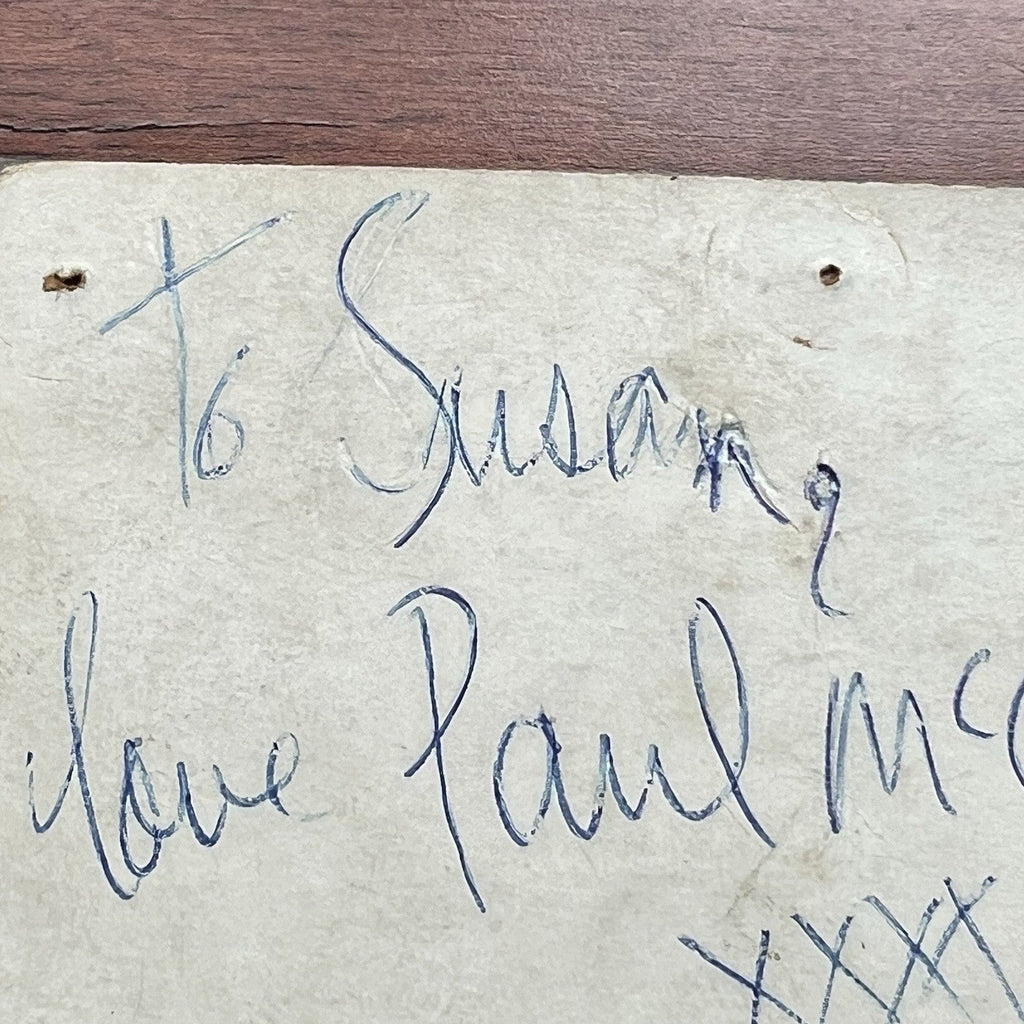 To Susan,
love Paul McC
XXXX